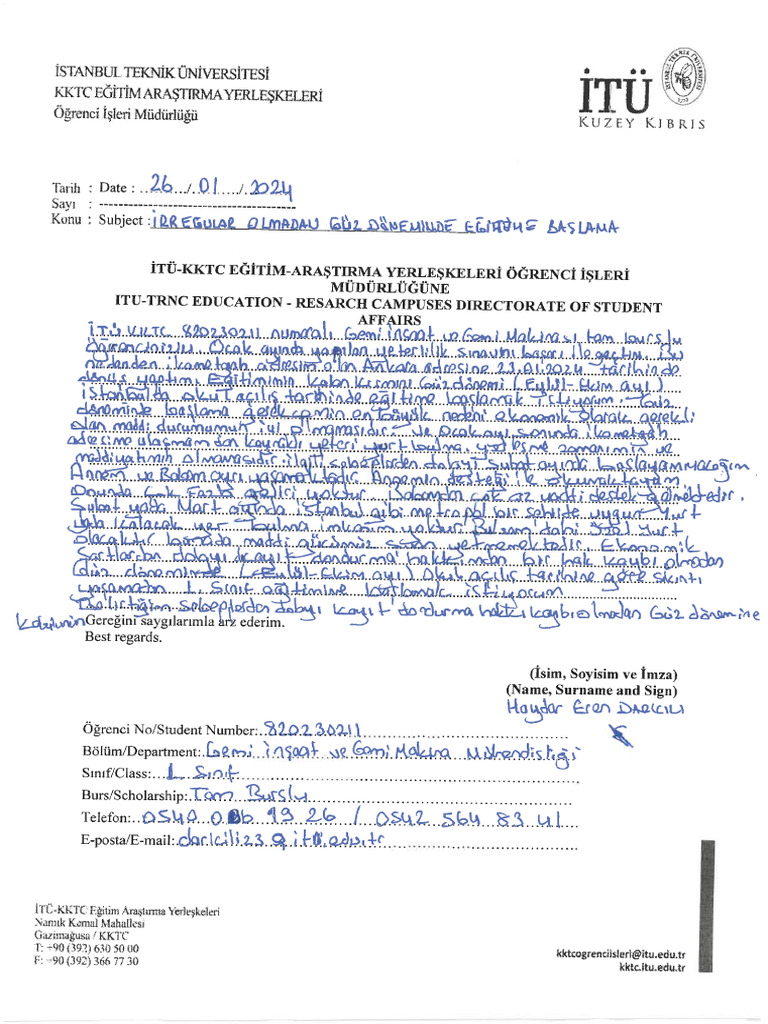 İSTANBUL TEKNİK ÜNİVERSİTESİ
KKTC EĞİTİM ARAŞTIRMA YERLEŞKELERİ
Öğrenci İşleri Müdürlüğü
İTÜ
KUZEY KIBRIS
Tarih : Date : ..26..../..01..../..2024
Sayı : ---------------------------------------
Konu : Subject : İRREGULAR OLMADAN GÜZ DÖNEMİNDE EĞİTİME BAŞLAMA
İTÜ-KKTC EĞİTİM-ARAŞTIRMA YERLEŞKELERİ ÖĞRENCİ İŞLERİ
MÜDÜRLÜĞÜNE
ITU-TRNC EDUCATION - RESARCH CAMPUSES DIRECTORATE OF STUDENT
AFFAIRS
İTÜ KKTC 820230211 numaralı Gemi İnşaat ve Gemi Makinası tam burslu
Öğrencinizim Ocak ayında yapılan yeterlilik sınavını başarı ile geçtim. Bu
nedenden ikametgah adresim olan Ankara adresine 23.01.2024 tarihinde
dönüş yaptım. Eğitimimin kalan kısmını Güz dönemi (Eylül-Ekim ayı)
İstanbulda okul açılış tarihinde eğitime başlamak istiyorum. Güz
döneminde başlama gerekçemin en büyük nedeni ekonomik olarak gerekli
olan maddi durumumun iyi olmamasıdır. Ve Ocak ayı sonunda ikametgah
adresime ulaşmamdan kaynaklı yeteri yurt bulma, yerleşme zamanımın ve
maddiyatımın olmamasıdır. ilgili sebeplerden dolayı Şubat ayında başlayamayacağım
Annem ve Babam ayrı yaşamaktadır. Annemin desteği ile okumaktaydım.
Onunda çok fazla geliri yoktur. Babamdan çok az maddi destek gelmektedir.
Şubat yada Mart ayında İstanbul gibi metropal bir şehirde uygun Yurt
yada kalacak yer bulma imkanım yoktur. Bulsam dahi özel Yurt
olacaktır burada maddi gücümüz yetmemektedir. Ekonomik
Şartlardan dolayı kayıt dondurma hakkımdan bir hak kaybı olmadan
Güz döneminde (Eylül-Ekim ayı) Okul açılış tarihine göre sıkıntı
yaşamadan 1. Sınıf eğitimine başlamak istiyorum
Belirttiğim sebeplerden dolayı kayıt dondurma hakkı kaybı olmadan Güz dönemine
Gereğini saygılarımla arz ederim.
Best regards.
(İsim, Soyisim ve İmza)
(Name, Surname and Sign)
Haydar Eren DARICILI
Öğrenci No/Student Number: 820230211
Bölüm/Department: Gemi İnşaat ve Gemi Makina Mühendisliği
Sınıf/Class: 1. Sınıf
Burs/Scholarship: Tam Burslu
Telefon: 0542 564 83 41
E-posta/E-mail: daricili23@itü.edu.tr
İTÜ-KKTC Eğitim Araştırma Yerleşkeleri
Namık Kemal Mahallesi
Gazimağusa / KKTC
T: +90 (392) 630 50 00
F: +90 (392) 366 77 30
kktcogrenciisleri@itu.edu.tr
kktc.itu.edu.tr